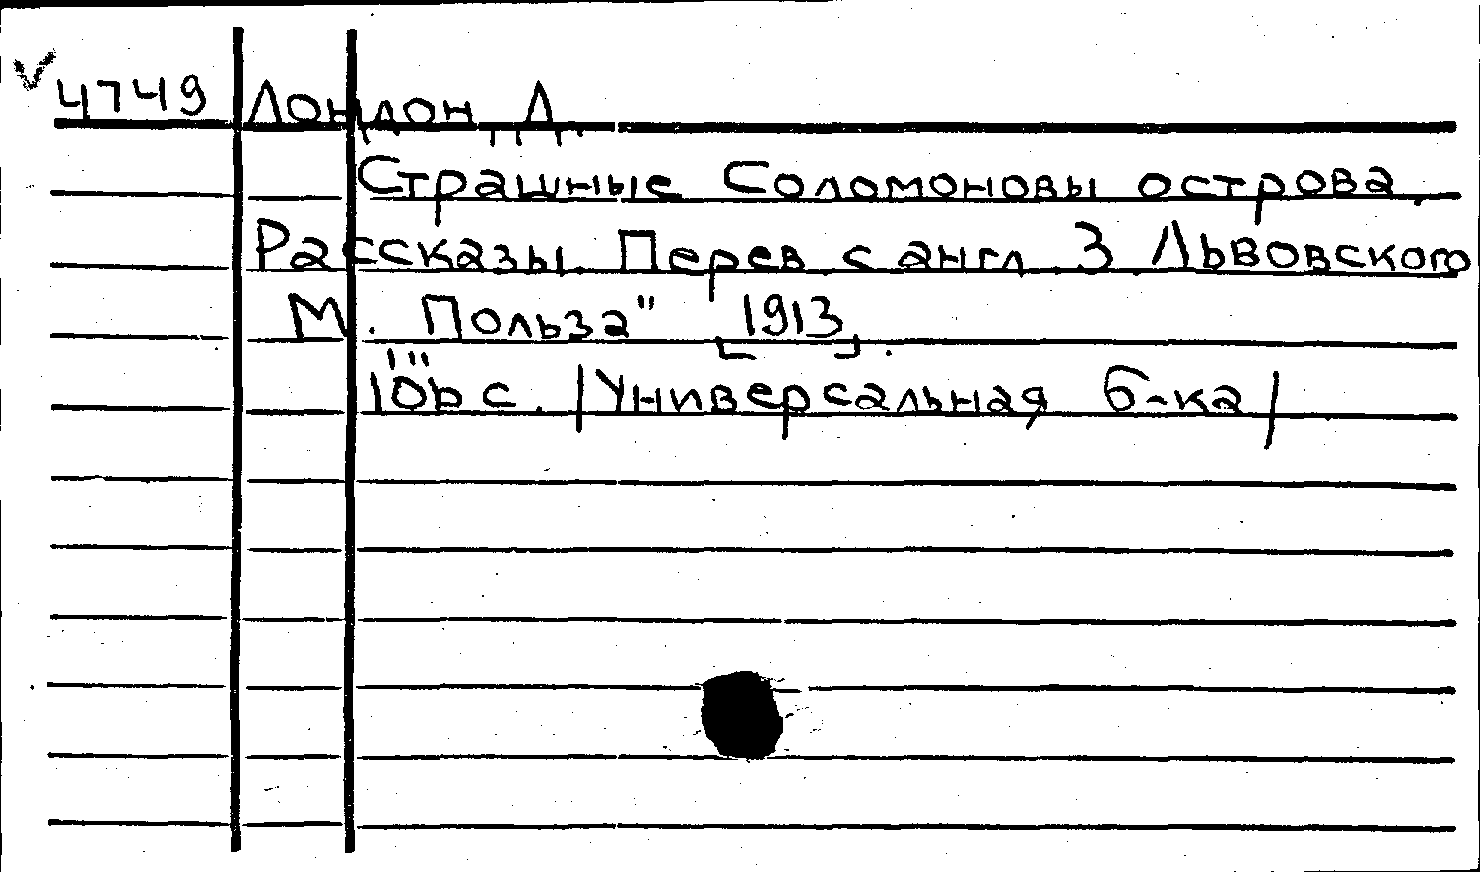 4749 Лондон, Д.
Страшные Соломоновы острова.
Рассказы. Перев с англ. З. Львовского
М. Польза" [1913].
с. /Универсальная б-ка/